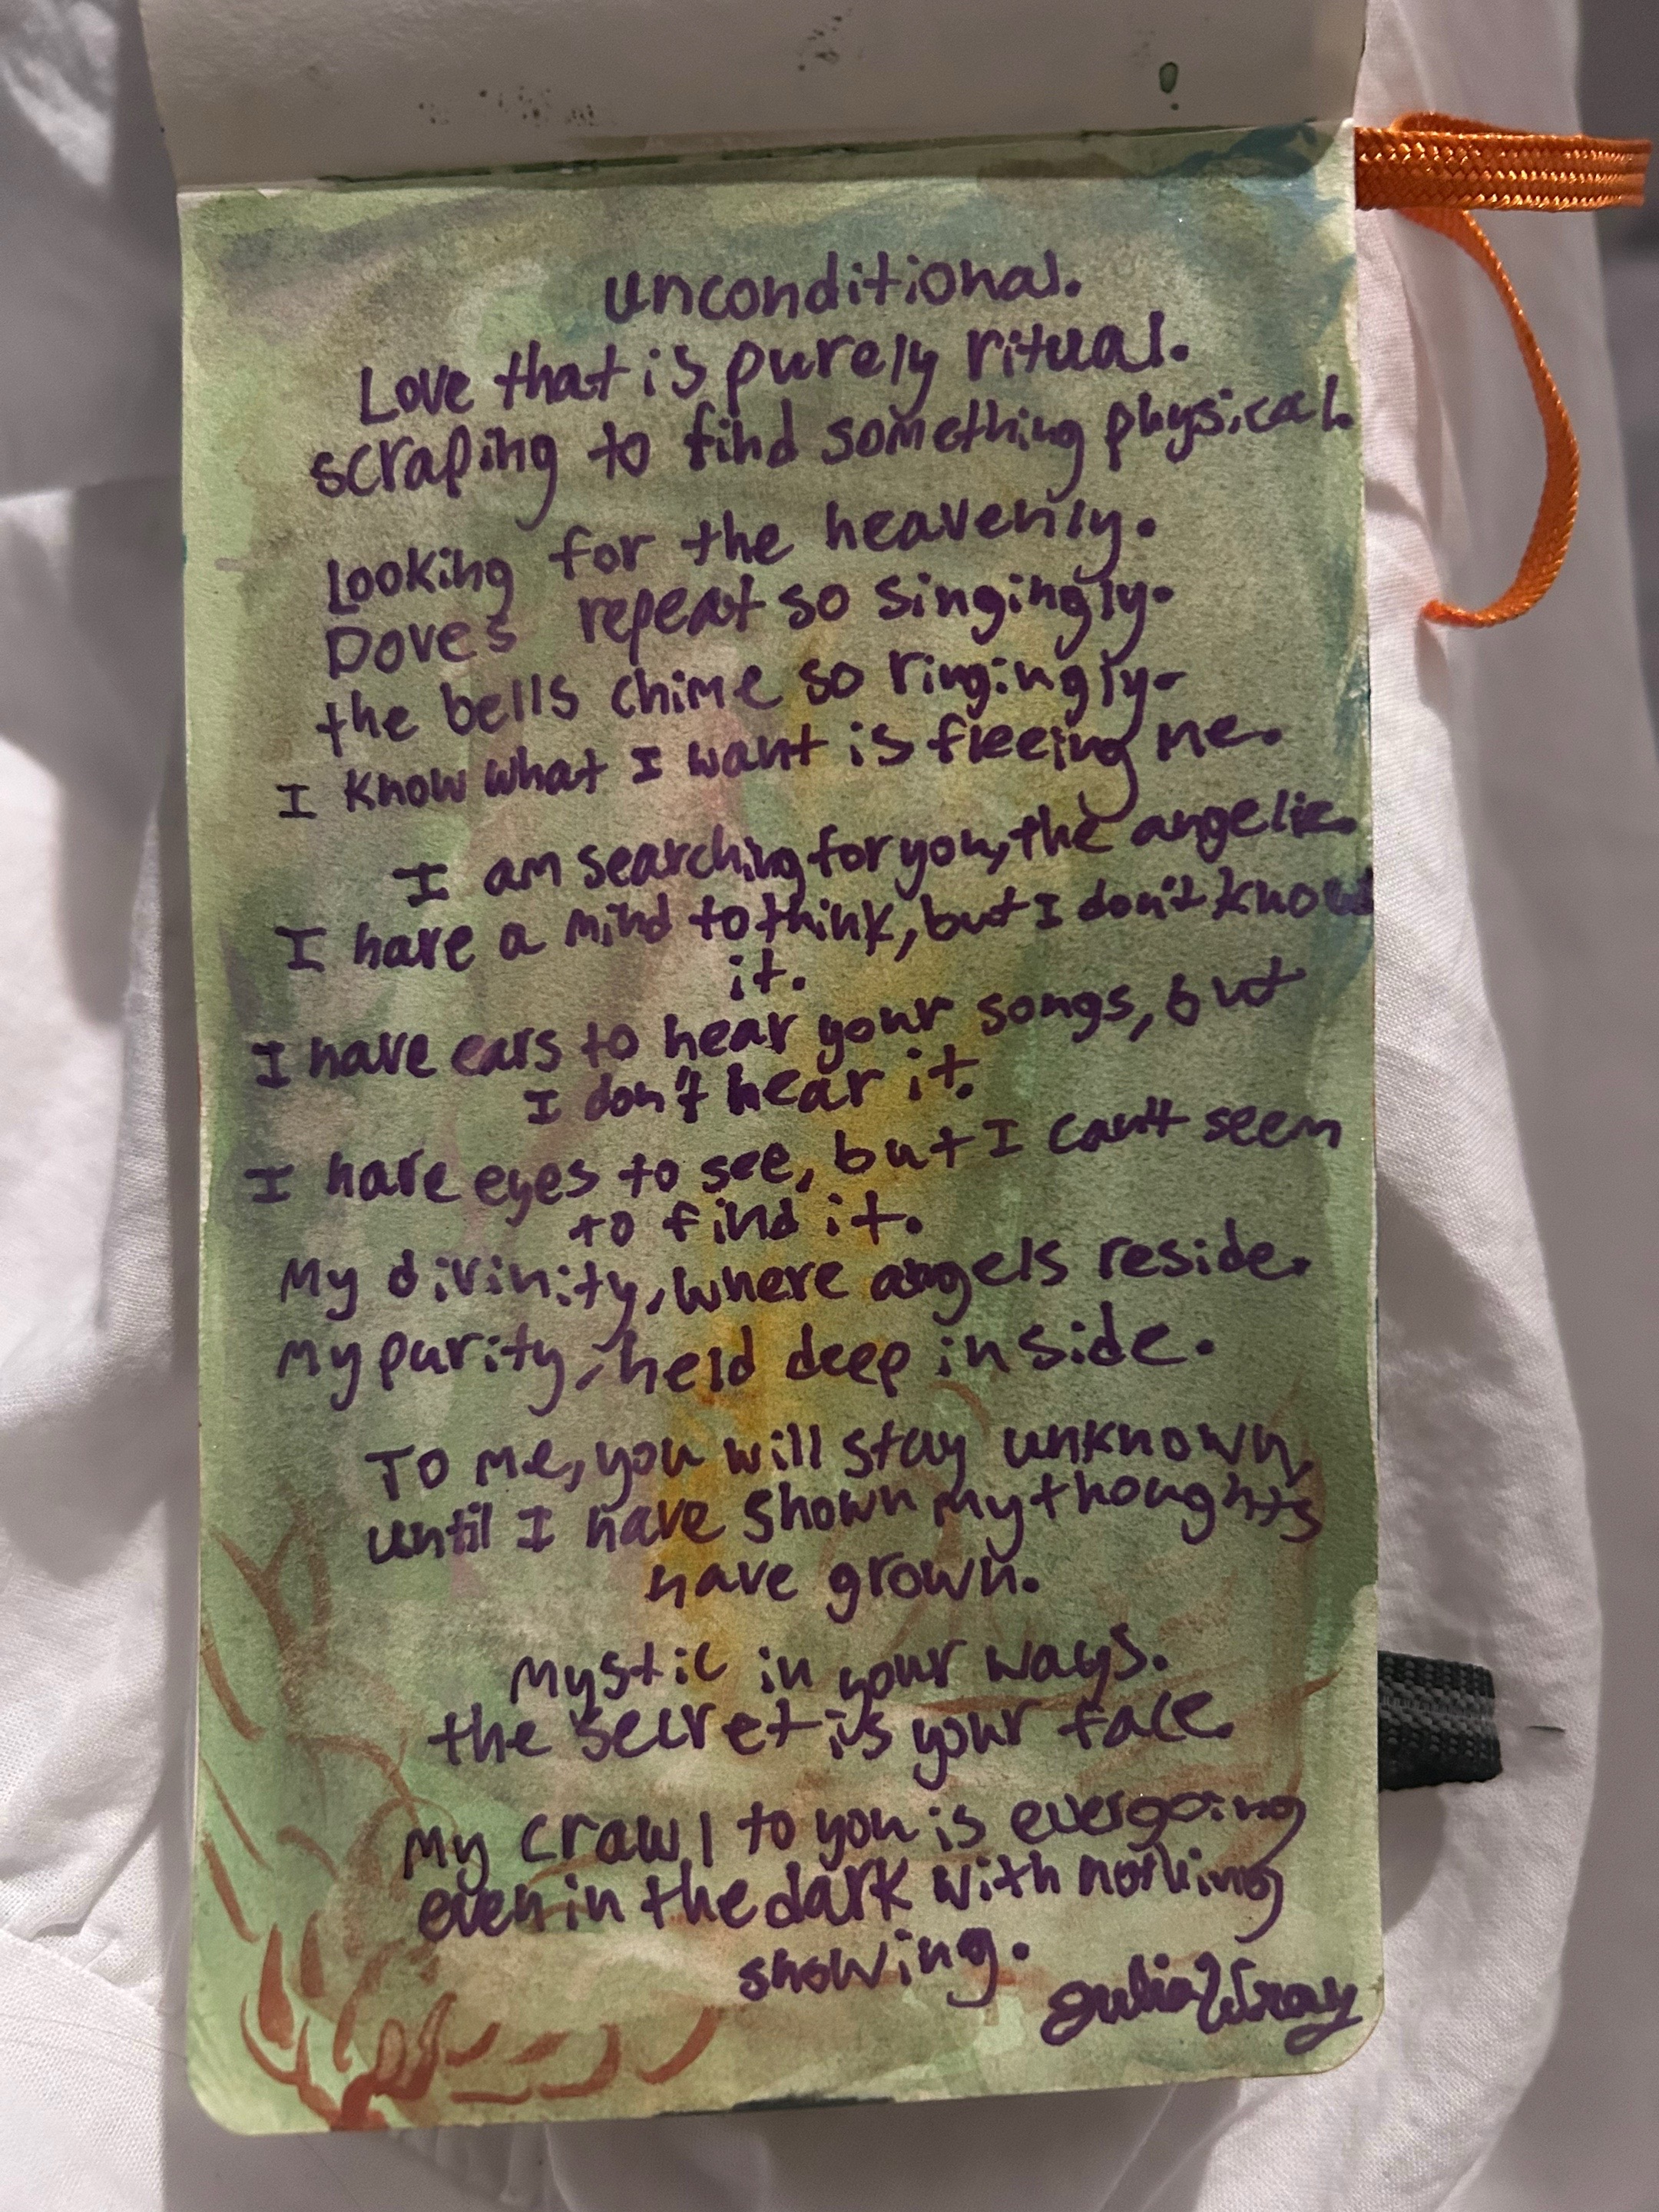 unconditional.
Love that is purely ritual.
scraping to find something physical.
Looking for the heavenly.
Doves repeat so singingly.
the bells chime so ringingly.
I know what I want is fleeing me.
I am searching for you, the angelic.
I have a mind to think, but I don't know
it.
I have ears to hear your songs, but
I don't hear it.
I have eyes to see, but I can't seem
to find it.
My divinity, where angels reside.
My purity, held deep inside.
To me, you will stay unknown,
until I have shown my thoughts
have grown.
Mystic in your ways.
the secret is your face.
My crawl to you is evergoing
even in the dark with nothing
showing.
Julia Wray